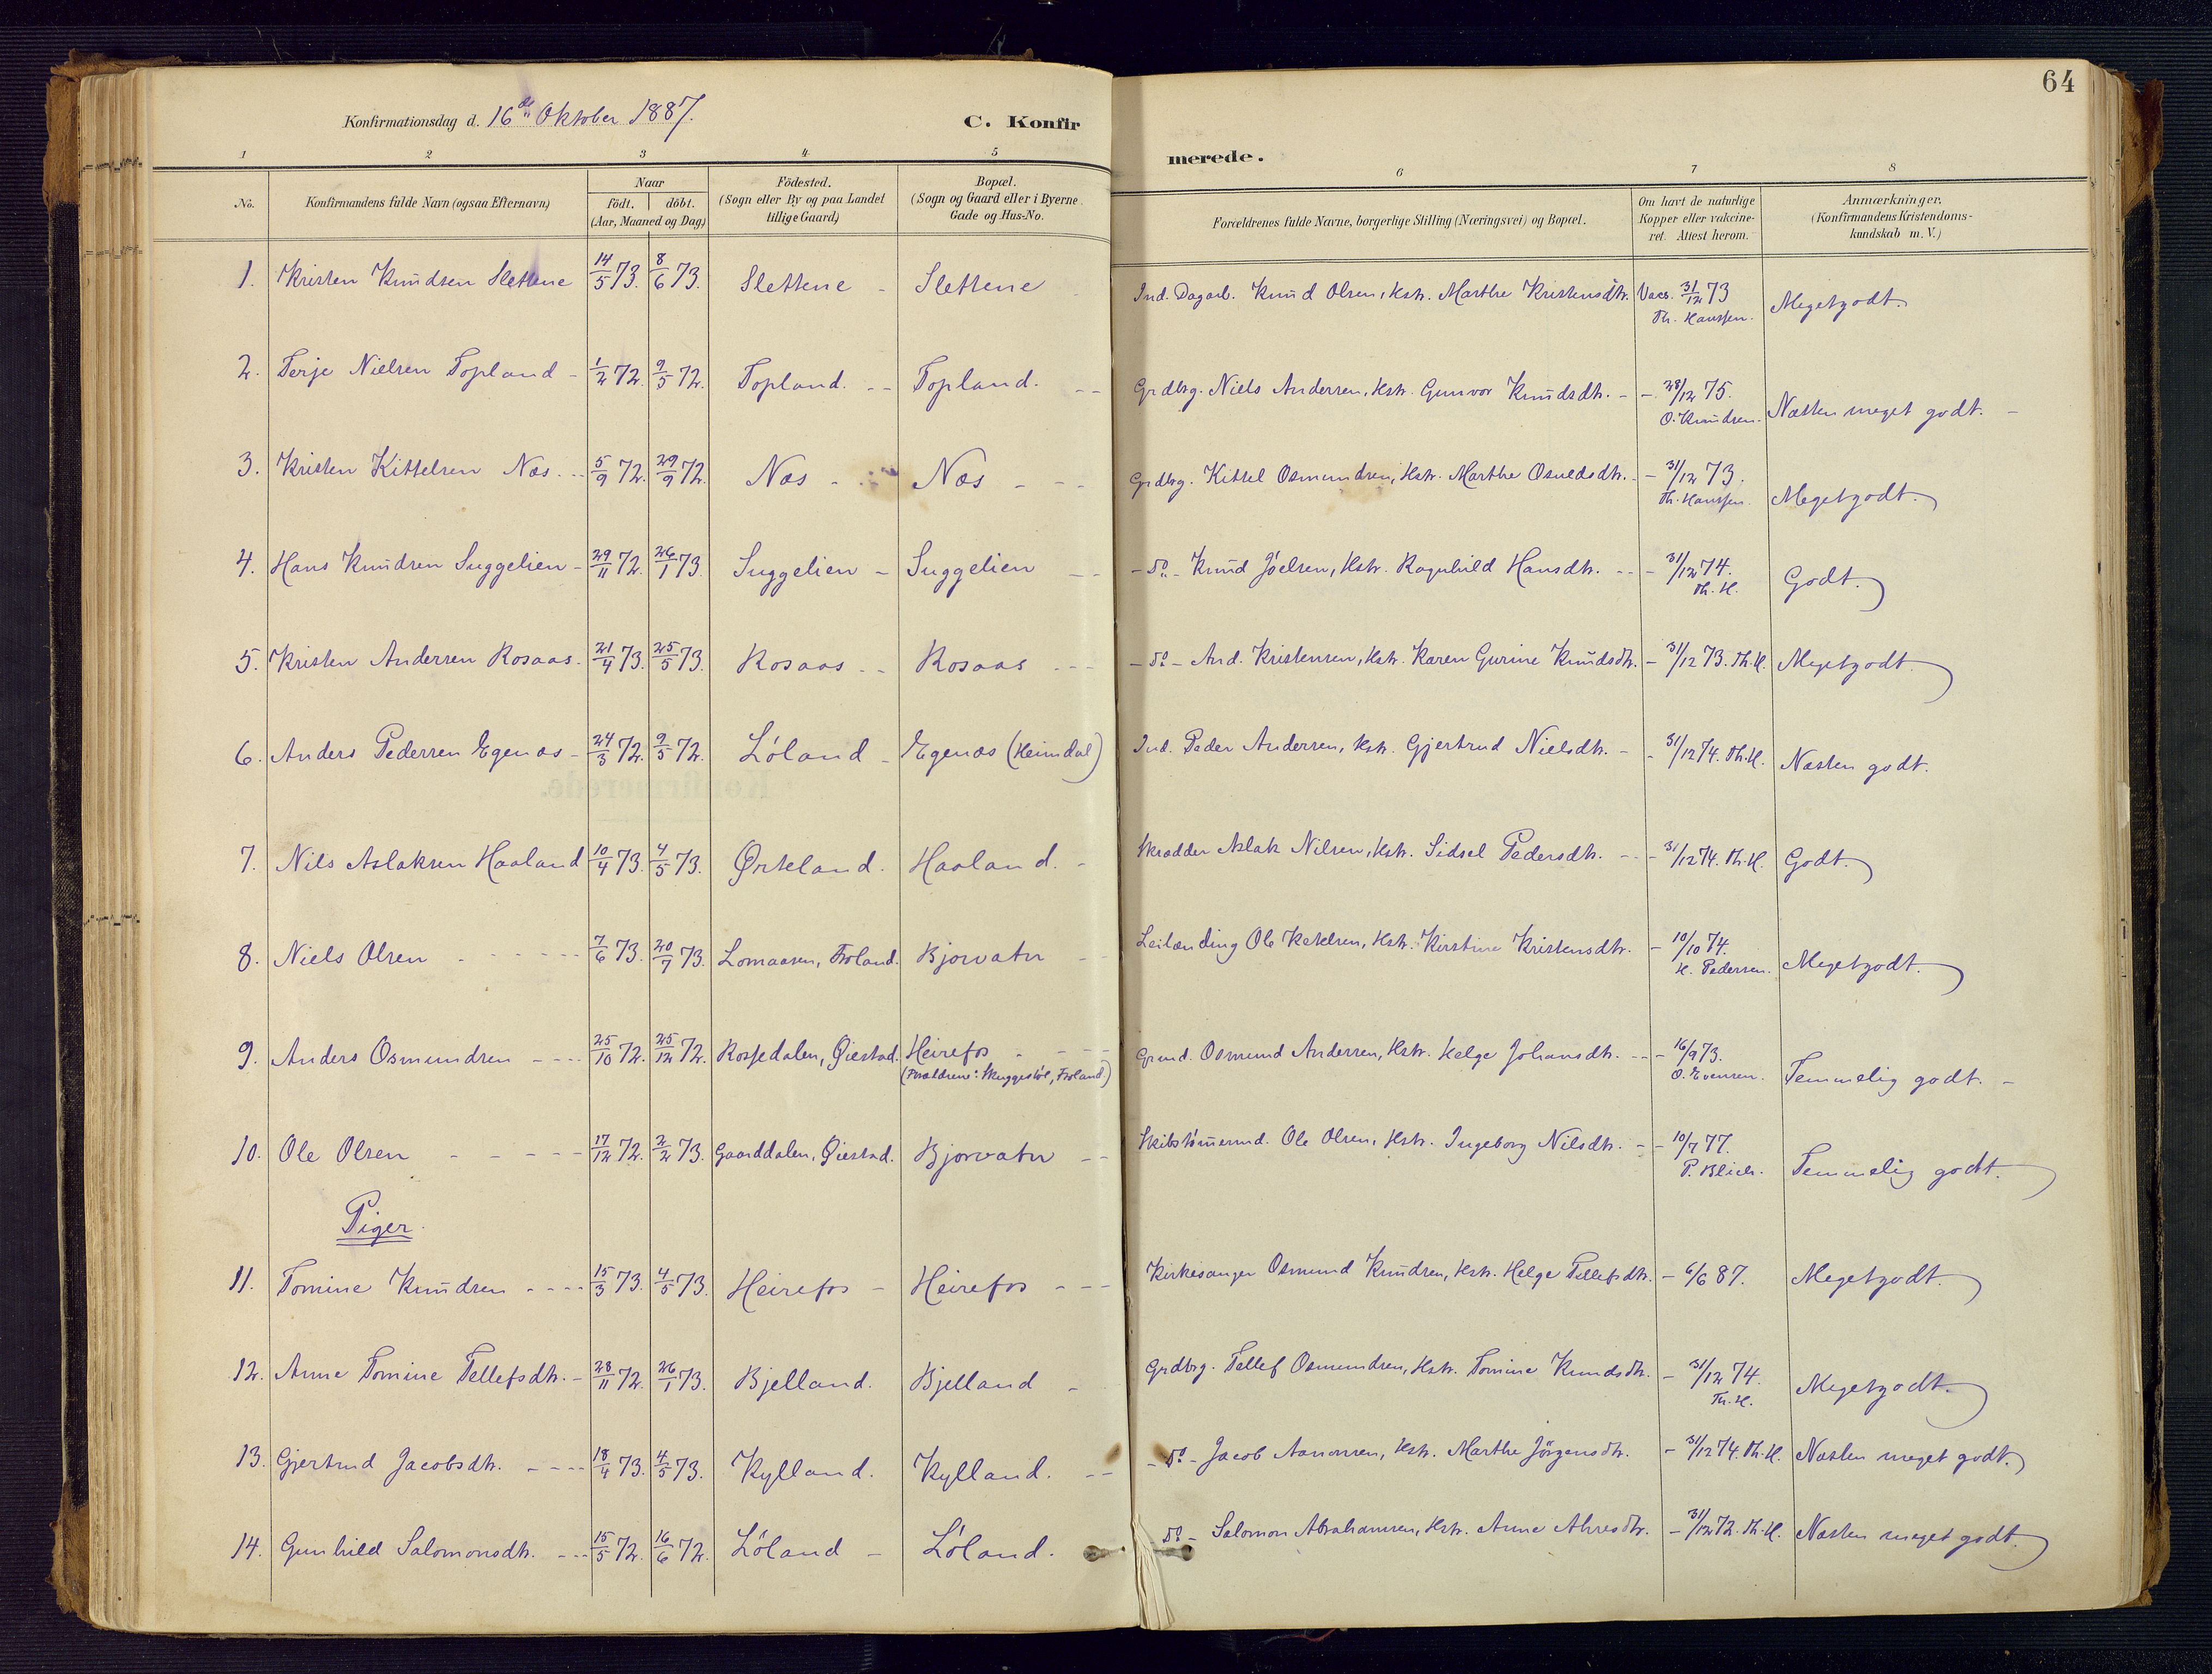 64
Konfirmationsdag d. 16de Oktober 1887.
C. Konfir
merede.
1 2 3 4 5 6 7 8
No.
Konfirmandens fulde Navn (ogsaa Efternavn)
Naar
födt. döbt.
(Aar, Maaned og Dag)
Födested.
(Sogn eller By og paa Landet
tillige Gaard)
Bopæl.
(Sogn og Gaard eller i Byerne
Gade og Hus-No.
Forældrenes fulde Navne, borgerlige Stilling (Næringsvei) og Bopæl.
Om havt de naturlige
Kopper eller vakcine-
ret. Attest herom.
Anmærkninger.
(Konfirmandens Kristendoms-
kundskab m. V.)
1. Kristen Knudsen Slettene 14/5 73. 8/6 73. Slettene - Slettene Ind. Dagarb. Knud Olsen, Kstr. Marthe Kristensdtr. Vacc. 31/12 73 Megetgodt.
Th. Hanssen.
2. Terje Nielsen Topland - 1/2 72. 9/5 72. Topland. -- Topland. -- Grdbrg. Niels Andersen, Kstr. Gunvor Knudsdtr. - - 28/12 75. Næsten meget godt. -
O. Knudsen.
3. Kristen Kittelsen Næs. -- 5/9 72. 29/9 72. Næs - Næs - -- Grdbrg. Kittel Osmundsen, Kstr. Marthe Osuldsdtr. - - 31/12 73. Megetgodt.
Th. Hanssen.
4. Hans Knudsen Suggelien - 29/11 72. 26/1 73. Suggelien - Suggelien -- - Do - Knud Joelsen, Kstr. Ragnhild Hansdtr. -- - 31/12 74. Godt.
Th. H.
5. Kristen Andersen Rosaas. 21/4 73. 25/5 73. Rosaas -- Rosaas --- - Do - And. Kristensen, Kstr. Karen Gurine Knudsdtr. - 31/12 73. Th. H. Megetgodt.
6. Anders Pedersen Egenæs - 24/3 72. 9/5 72. Löland - Egenæs (Heimdal) Ind. Peder Andersen, Kstr. Gjertrud Nielsdtr. - - 31/12 74. Th. H. Næsten godt.
7. Nils Aslaksen Haaland 10/4 73. 4/5 73. Ørteland. Haaland. - Skrædder Aslak Nilsen, Kstr. Sidsel Pedersdtr. -- - 31/12 74. Th. H. Godt.
8. Niels Olsen ----- 7/6 73. 20/7 73. Lomaasen, Froland. Bjorvatn -- Leilænding Ole Ketelsen, Kstr. Kirstine Kristensdtr. - 10/10 74. Megetgodt.
H. Pedersen.
9. Anders Osmundsen ---- 25/10 72. 25/12 72. Rossedalen, Øiestad. Heirefos ---- Grmd. Osmund Andersen, Kstr. Helge Johansdtr. -- - 16/9 73. Temmelig godt. -
(Forældrene: Skuggestöl, Froland) O. Evensen.
10. Ole Olsen ----- 17/12 72. 2/2 73. Gaarddalen, Øiestad. Bjorvatn -- Skibstömmermd. Ole Olsen, Kstr. Ingeborg Nilsdtr. -- 10/7 77. Temmelig godt.
P. Blich.
Piger.
11. Tomine Knudsen ---- 15/3 73. 4/5 73. Heirefos - Heirefos --- Kirkesanger Osmund Knudsen, Kstr. Helge Tellefsdtr. - 6/6 87. Megetgodt.
12. Anne Tomine Tellefsdtr. - 28/11 72. 26/1 73. Bjelland. Bjelland - Grdbrg. Tellef Osmundsen, Kstr. Tomine Knudsdtr. - 31/12 74. Megetgodt.
Th. H.
13. Gjertrud Jacobsdtr. ---- 18/4 73. 4/5 73. Kylland. Kylland. -- - Do - Jacob Aanonsen, Kstr. Marthe Jörgensdtr. - 31/12 74. Th. H. Næsten meget godt.
14. Gunhild Salomonsdtr. --- 15/5 72. 16/6 72. Löland - Löland. Do - Salomon Abrahamsen, Kstr. Anne Ahresdtr. - 31/12 72. Th. H. Næsten meget godt.